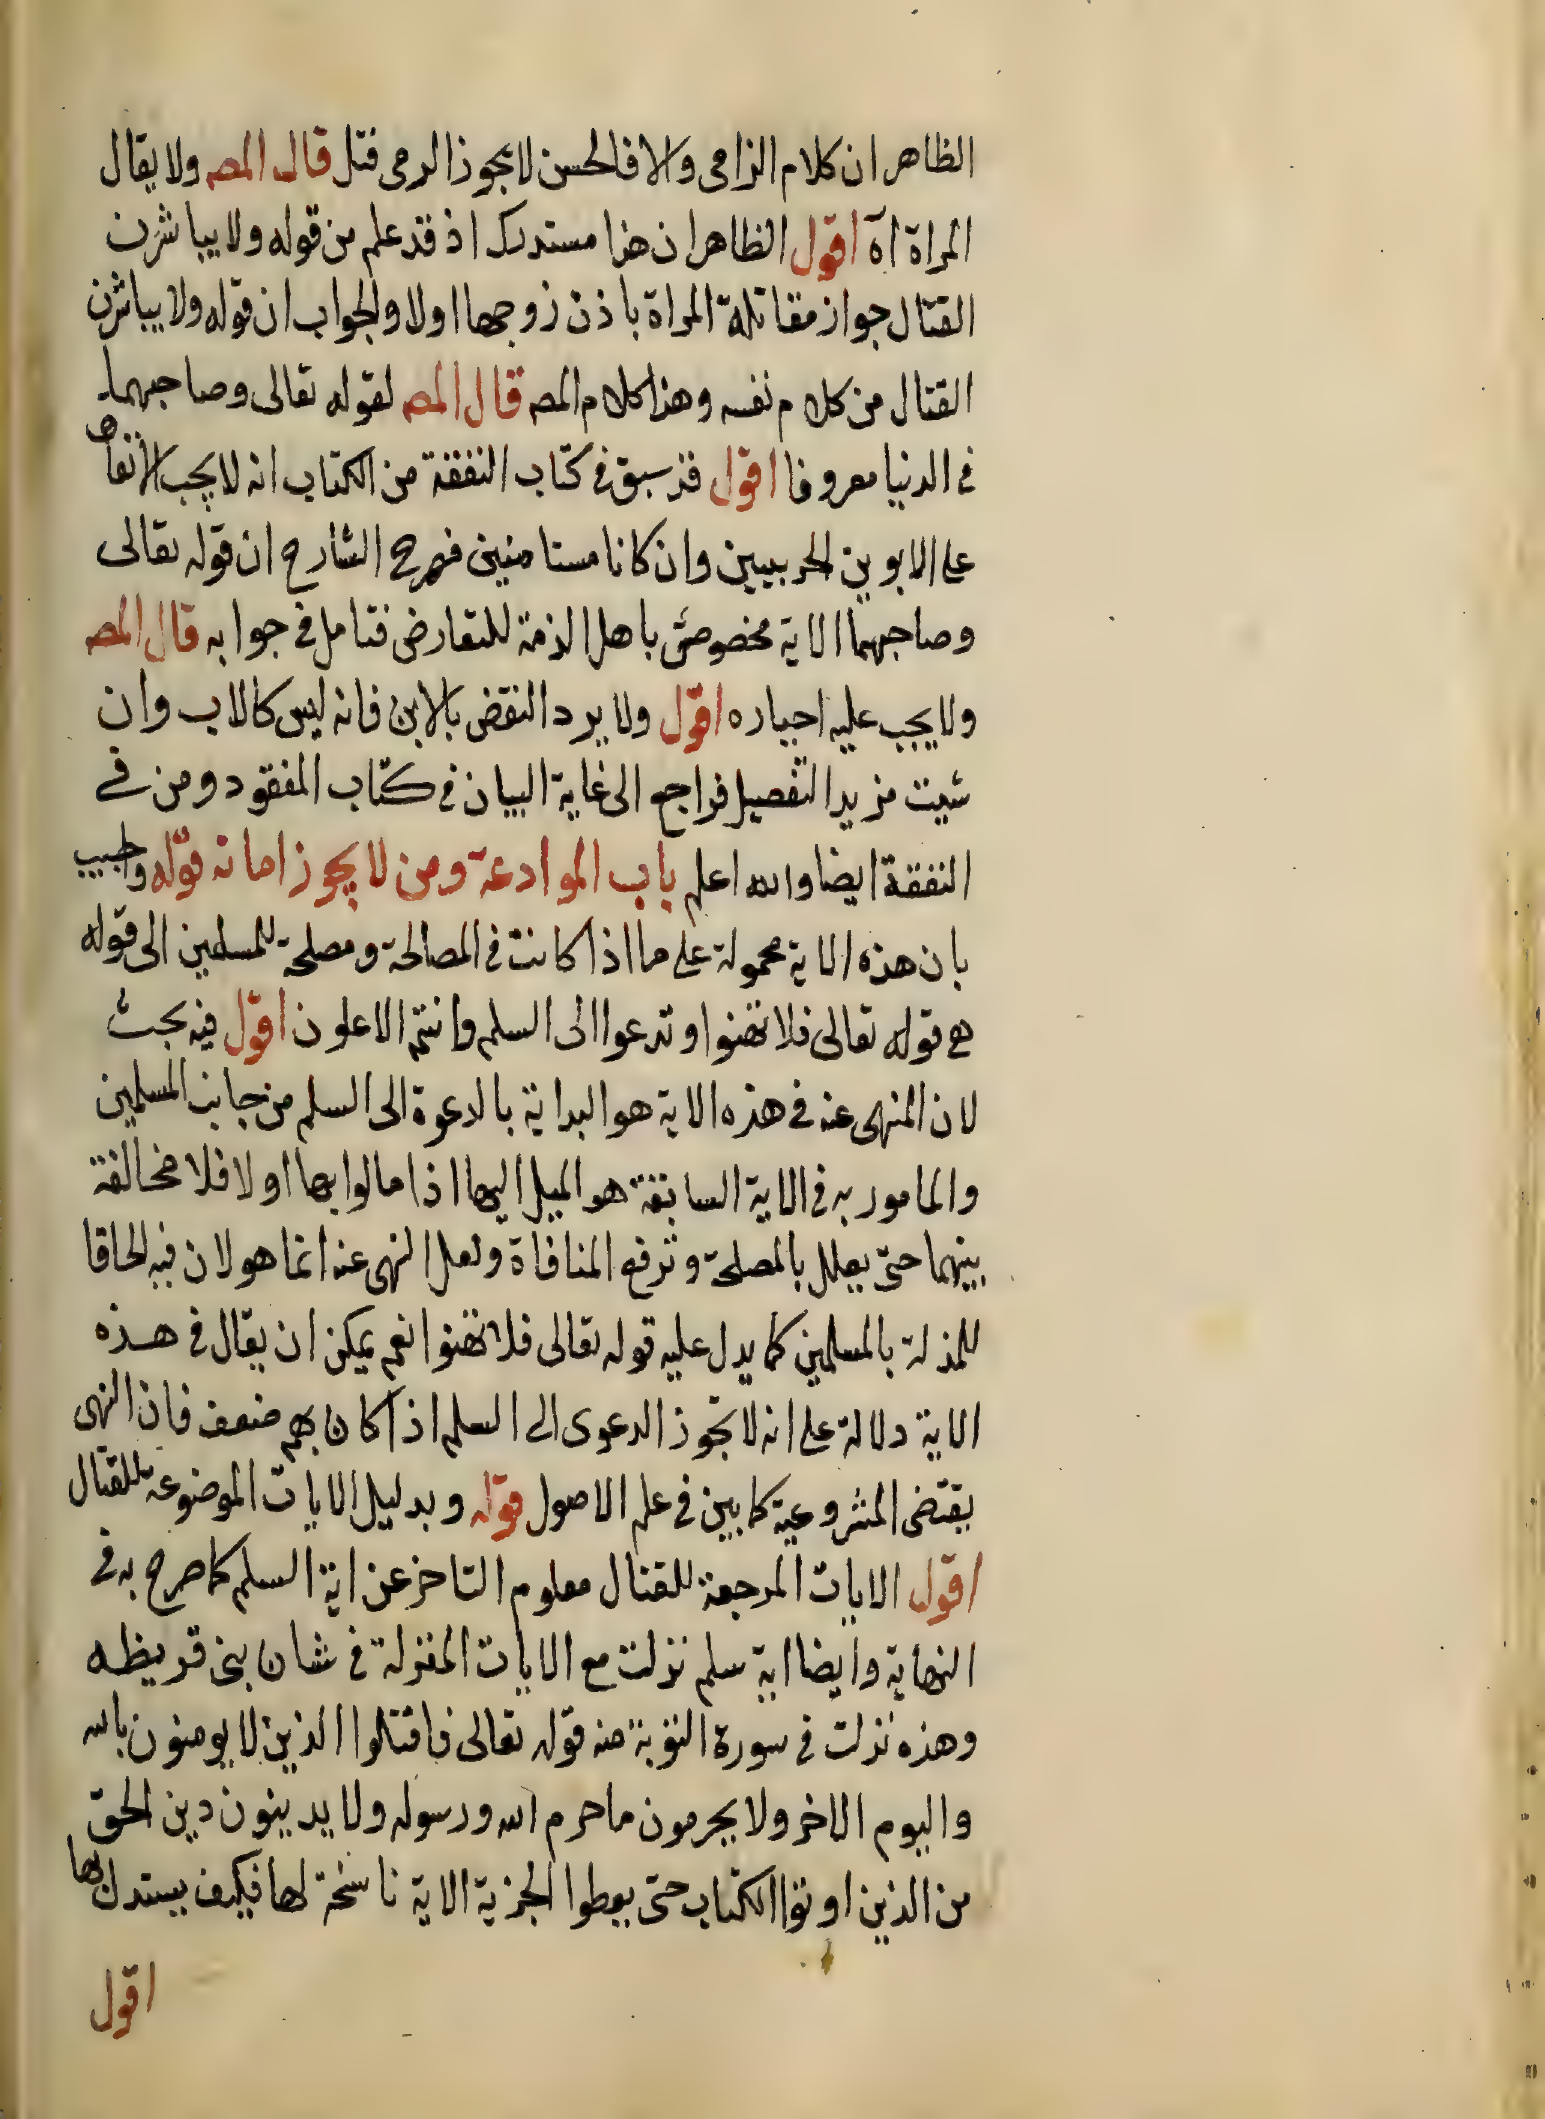 الظاهر ان كلام الزامى والا فالحسن لا يجوز الرمى قتل قال المصه ولا يقال
المراة اه اقول الظاهر ان هذا مستدرك اذ قد علم من قوله ولا يباشرن
القتال جواز مقاتلة المراة باذن زوجها اولا والجواب ان قوله ولا يباشرن
القتال من كلام نفسه وهذا كلام المصه قال المصه لقوله تعالى وصاحبهما
فى الدنيا معروفا اقول قد سبق فى كتاب النفقة من الكتاب انه لا يجب الانفاق
على الابوين الحربيين وان كانا مستامنين فصرح الشارح ان قوله تعالى
وصاحبهما الاية مخصوص باهل الذمة للتعارض فتامل فى جوابه قال المصه
ولا يجب عليه احياره اقول ولا يرد النقض بالابن فانه ليس كالاب وان
شيت مزيد التفصيل فراجع الى غاية البيان فى كتاب المفقود ومن فى
النفقة ايضا والله اعلم باب الموادعة ومن لا يجوز امانه قوله واجيب
بان هذه الاية محمولة على ما اذا كانت فى المصالحة ومصلحة للمسلمين الى قوله
هى قوله تعالى فلا تهنوا وتدعوا الى السلم وانتم الاعلون اقول فيه بحث
لان المنهى عنه فى هذه الاية هو البداية بالدعوة الى السلم من جانب المسلمين
والمامور به فى الاية السابقة هو الميل اليها اذا مالوا بها اولا فلا مخالفة
بينهما حتى يعلل بالمصلحة وترفع المنافاة ولعل النهى عنه انما هو لان فيه الحاقا
للمذلة بالمسلمين كما يدل عليه قوله تعالى فلا تهنوا نعم يمكن ان يقال فى هذه
الاية دلالة على انه لا تجوز الدعوى الى السلم اذا كان بهم ضعف فان النهى
يقتضى المشروعية كما بين فى علم الاصول قوله وبدليل الايات الموضوعة للقتال
اقول الايات المرجعة للقتال معلوم التاخر عن اية السلم كما صرح به فى
النهاية وايضا اية سلم نزلت مع الايات المنزلة فى شان بنى قريظه
وهذه نزلت فى سورة التوبة منه قوله تعالى فاقتلوا الذين لا يومنون بالله
واليوم الاخر ولا يحرمون ما حرم الله ورسوله ولا يدينون دين الحق
من الذين اوتوا الكتاب حتى يعطوا الجزية الاية ناسخة لها فكيف يستدل بها
اقول